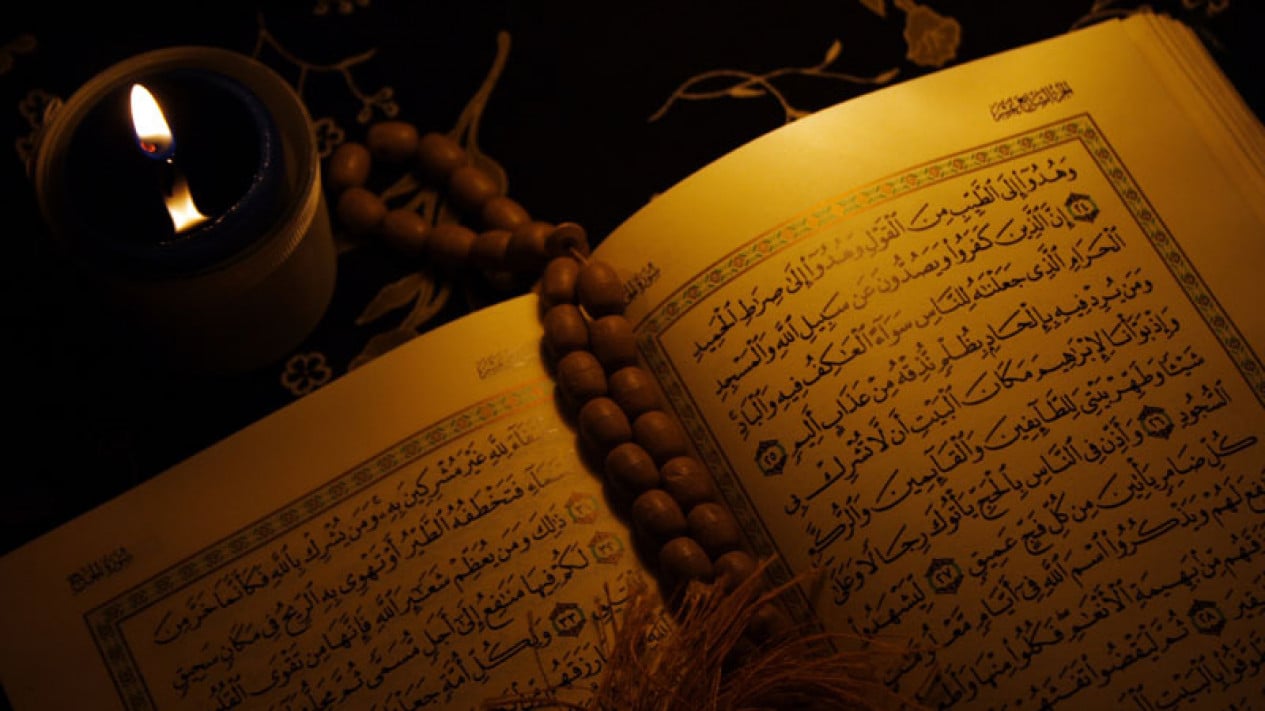 الجزء السابع عشر
سورة الحج
وَهُدُوٓا۟ إِلَى ٱلطَّيِّبِ مِنَ ٱلْقَوْلِ وَهُدُوٓا۟ إِلَىٰ صِرَٰطِ ٱلْحَمِيدِ
٢٤ إِنَّ ٱلَّذِينَ كَفَرُوا۟ وَيَصُدُّونَ عَن سَبِيلِ ٱللَّهِ وَٱلْمَسْجِدِ
ٱلْحَرَامِ ٱلَّذِى جَعَلْنَٰهُ لِلنَّاسِ سَوَآءً ٱلْعَٰكِفُ فِيهِ وَٱلْبَادِ
وَمَن يُرِدْ فِيهِ بِإِلْحَادٍۭ بِظُلْمٍ نُّذِقْهُ مِنْ عَذَابٍ أَلِيمٍ ٢٥
وَإِذْ بَوَّأْنَا لِإِبْرَٰهِيمَ مَكَانَ ٱلْبَيْتِ أَن لَّا تُشْرِكْ بِى
شَيْـًٔا وَطَهِّرْ بَيْتِىَ لِلطَّآئِفِينَ وَٱلْقَآئِمِينَ وَٱلرُّكَّعِ
ٱلسُّجُودِ ٢٦ وَأَذِّن فِى ٱلنَّاسِ بِٱلْحَجِّ يَأْتُوكَ رِجَالًا وَعَلَىٰ
كُلِّ ضَامِرٍ يَأْتِينَ مِن كُلِّ فَجٍّ عَمِيقٍ ٢٧ لِّيَشْهَدُوا۟
لَهُمْ وَيَذْكُرُوا۟ ٱسْمَ ٱللَّهِ فِىٓ أَيَّامٍ
مِّنۢ بَهِيمَةِ ٱلْأَنْعَٰمِ فَكُلُوا۟ مِنْهَا
٢٨ ثُمَّ لْيَقْضُوا۟ تَفَثَهُمْ
بِٱلْبَيْتِ
سورة الحج
لِلَّهِ غَيْرَ مُشْرِكِينَ بِهِۦ وَمَن يُشْرِكْ بِٱللَّهِ فَكَأَنَّمَا خَرَّ مِنَ
فَتَخْطَفُهُ ٱلطَّيْرُ أَوْ تَهْوِى بِهِ ٱلرِّيحُ فِى مَكَانٍ سَحِيقٍ
٣١ ذَٰلِكَ وَمَن يُعَظِّمْ شَعَٰٓئِرَ ٱللَّهِ فَإِنَّهَا مِن تَقْوَى ٱلْقُلُوبِ
٣٢ لَكُمْ فِيهَا مَنَٰفِعُ إِلَىٰٓ أَجَلٍ مُّسَمًّى ثُمَّ مَحِلُّهَآ
٣٣ وَلِكُلِّ أُمَّةٍ جَعَلْنَا